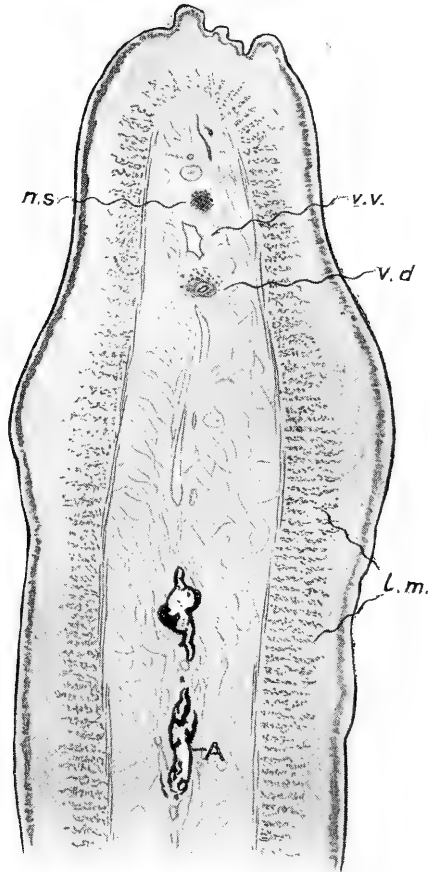 n.s.
v.v.
v.d
l.m.
A